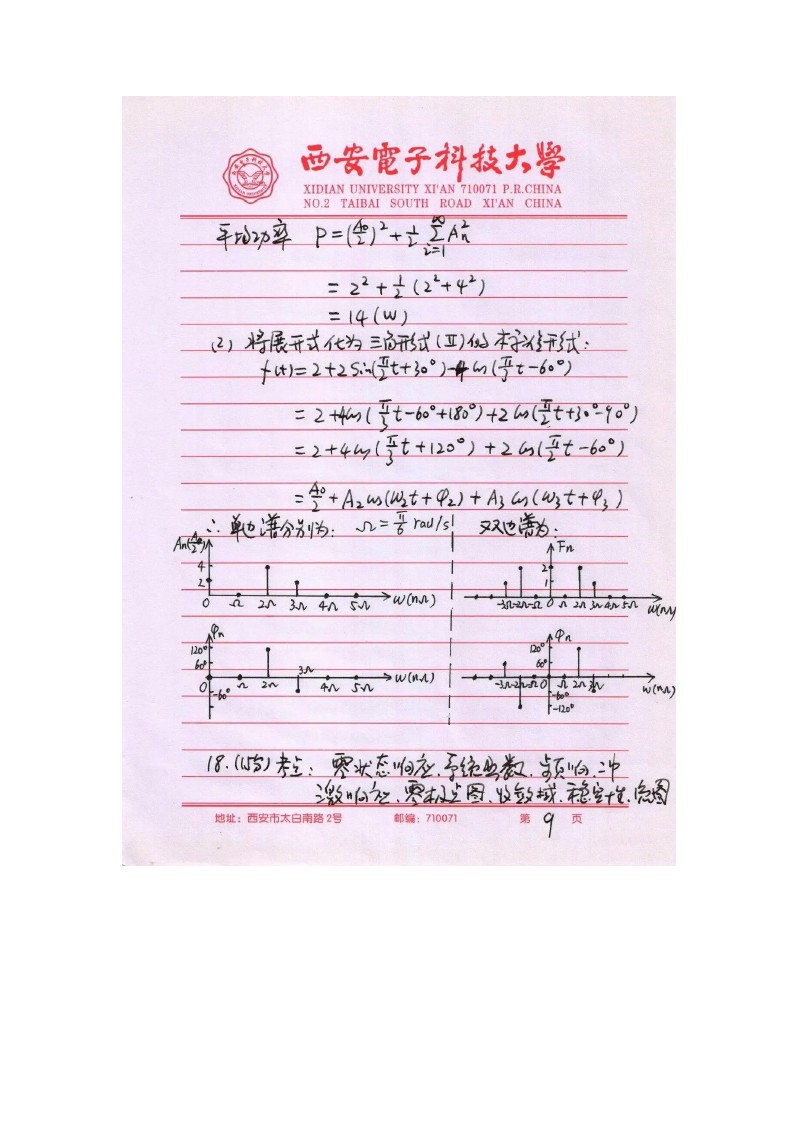 西安電子科技大學
XIDIAN UNIVERSITY XI'AN 710071 P.R.CHINA
NO.2 TAIBAI SOUTH ROAD XI'AN CHINA
平均功率 P=(A₀/2)²+1/2 ∑_{i=1}^{∞} Aₙ²
=2²+1/2(2²+4²)
=14(W)
(2) 将展开式化为三角形式(II)的标准形式:
f(t)=2+2Sin(π/2 t+30°)-4cos(π/3 t-60°)
=2+4cos(π/3 t-60°+180°)+2cos(π/2 t+30°-90°)
=2+4cos(π/3 t+120°)+2cos(π/2 t-60°)
=A₀/2+A₂cos(ω₂t+φ₂)+A₃cos(ω₃t+φ₃)
∴单边谱分别为: Ω=π/6 rad/s 双边谱为:
Aₙ(A₀/2)
4
2
0 Ω 2Ω 3Ω 4Ω 5Ω ω(nΩ)
Fₙ
2
1
-3Ω -2Ω -Ω 0 Ω 2Ω 3Ω 4Ω 5Ω ω(nΩ)
φₙ
120°
60°
0 Ω 2Ω 3Ω 4Ω 5Ω ω(nΩ)
-60°
φₙ
120°
60°
-3Ω -2Ω -Ω 0 Ω 2Ω 3Ω ω(nΩ)
-60°
-120°
18.(15分)考点: 零状态响应、系统函数、频响、冲
激响应、零极点图、收敛域、稳定性、流图
地址:西安市太白南路2号 邮编:710071 第 9 页